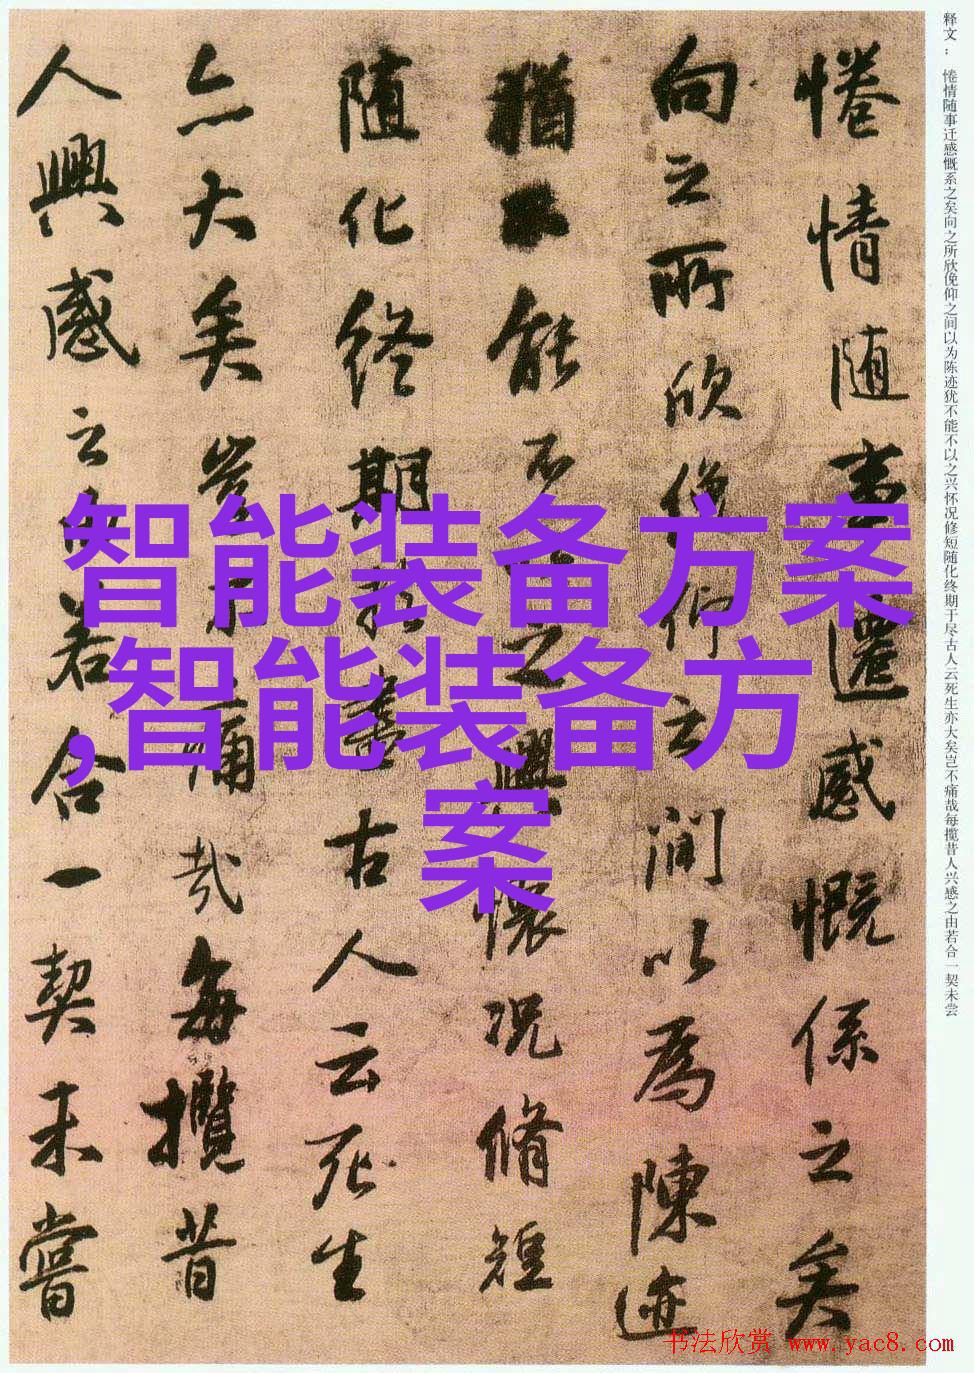 释文： 惓情随事迁感慨系之矣向之所欣俛仰之间以为陈迹犹不能不以之兴怀况修短随化终期于尽古人云死生亦大矣岂不痛哉每揽昔人兴感之由若合一契未尝
惓情随事遷感慨係之矣
向之所欣俛仰之間以為陳迹
猶不能不以之興懷况脩短
随化終期於盡古人云死生
亦大矣豈不痛哉每攬昔
人興感之由若合一契未嘗
智能装备方案
,智能装备方
案
书法欣赏 www.yac8.com